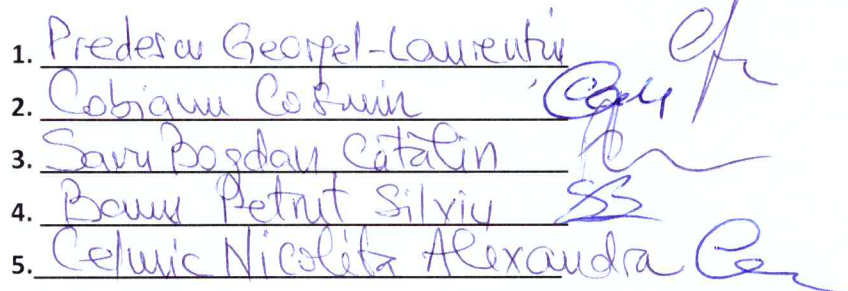 1. Predescu Georgel-Laurentiu
2. Cobianu Cosmin
3. Savu Bogdan Cătălin
4. Petrut Silviu
5. Nicoleta Alexandra